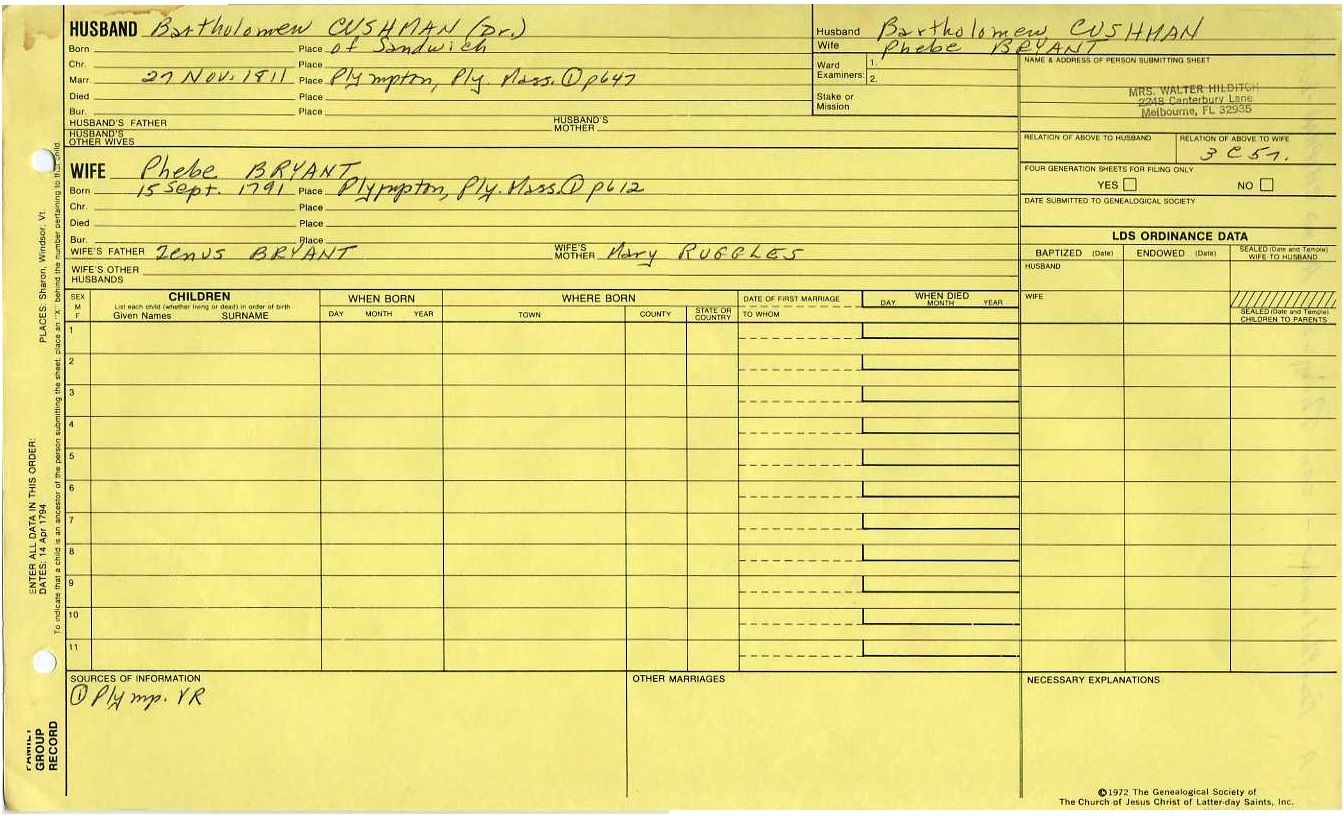 HUSBAND Bartholomew CUSHMAN (Dr.)
Born Place of Sandwich
Chr. Place
Marr. 27 Nov. 1811 Place Plympton, Ply. Mass. ① p647
Died Place
Bur. Place
HUSBAND'S FATHER HUSBAND'S MOTHER
HUSBAND'S OTHER WIVES
Husband Bartholomew CUSHMAN
Wife Phebe BRYANT
Ward Examiners: 1.
2.
Stake or Mission
NAME & ADDRESS OF PERSON SUBMITTING SHEET
MRS. WALTER HILDITCH
2248 Canterbury Lane
Melbourne, FL 32935
RELATION OF ABOVE TO HUSBAND RELATION OF ABOVE TO WIFE
3 C 5 r.
FOUR GENERATION SHEETS FOR FILING ONLY
YES NO
DATE SUBMITTED TO GENEALOGICAL SOCIETY
WIFE Phebe BRYANT
Born 15 Sept. 1791 Place Plympton, Ply. Mass. ① p612
Chr. Place
Died Place
Bur. Place
WIFE'S FATHER Zenus BRYANT WIFE'S MOTHER Mary RUGGLES
WIFE'S OTHER HUSBANDS
LDS ORDINANCE DATA
BAPTIZED (Date) ENDOWED (Date) SEALED (Date and Temple) WIFE TO HUSBAND
HUSBAND
WIFE
SEALED (Date and Temple) CHILDREN TO PARENTS
SEX M F
CHILDREN
List each child (whether living or dead) in order of birth
Given Names SURNAME
WHEN BORN
DAY MONTH YEAR
WHERE BORN
TOWN COUNTY STATE OR COUNTRY
DATE OF FIRST MARRIAGE
TO WHOM
WHEN DIED
DAY MONTH YEAR
1
2
3
4
5
6
7
8
9
10
11
SOURCES OF INFORMATION
① Plymp. VR
OTHER MARRIAGES
NECESSARY EXPLANATIONS
©1972 The Genealogical Society of
The Church of Jesus Christ of Latter-day Saints, Inc.
ENTER ALL DATA IN THIS ORDER:
DATES: 14 Apr 1794 PLACES: Sharon, Windsor, Vt.
To indicate that a child is an ancestor of the person submitting the sheet, place an "X" behind the number pertaining to that child.
FAMILY GROUP RECORD